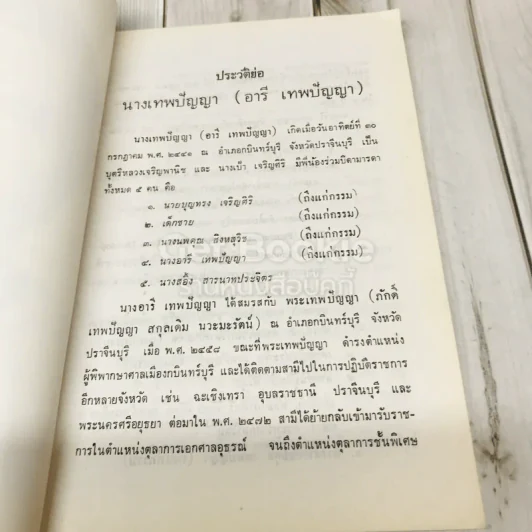 ประวัติย่อ
นางเทพปัญญา (อารี เทพปัญญา)
นางเทพปัญญา (อารี เทพปัญญา) เกิดเมื่อวันอาทิตย์ที่ ๓๐
กรกฎาคม พ.ศ. ๒๔๔๑ ณ อำเภอกบินทร์บุรี จังหวัดปราจีนบุรี เป็น
บุตรีหลวงเจริญพานิช และ นางเบ้า เจริญศิริ มีพี่น้องร่วมบิดามารดา
ทั้งหมด ๕ คน คือ
๑. นายบุญทรง เจริญศิริ (ถึงแก่กรรม)
๒. เด็กชาย (ถึงแก่กรรม)
๓. นางนพคุณ สิงหสุวิช (ถึงแก่กรรม)
๔. นางอารี เทพปัญญา (ถึงแก่กรรม)
๕. นางสอิ้ง สารนาทประจิตร
Bookie
ร้านหนังสือบุ๊คกี้
นางอารี เทพปัญญา ได้สมรสกับ พระเทพปัญญา (ภักดิ์
เทพปัญญา สกุลเดิม นวะมะรัตน์) ณ อำเภอกบินทร์บุรี จังหวัด
ปราจีนบุรี เมื่อ พ.ศ. ๒๔๕๘ ขณะที่พระเทพปัญญา ดำรงตำแหน่ง
ผู้พิพากษาศาลเมืองกบินทร์บุรี และได้ติดตามสามีไปในการปฏิบัติราชการ
อีกหลายจังหวัด เช่น ฉะเชิงเทรา อุบลราชธานี ปราจีนบุรี และ
พระนครศรีอยุธยา ต่อมาใน พ.ศ. ๒๔๗๒ สามีได้ย้ายกลับเข้ามารับราช-
การในตำแหน่งตุลาการเอกศาลอุธรณ์ จนถึงตำแหน่งตุลาการชั้นพิเศษ